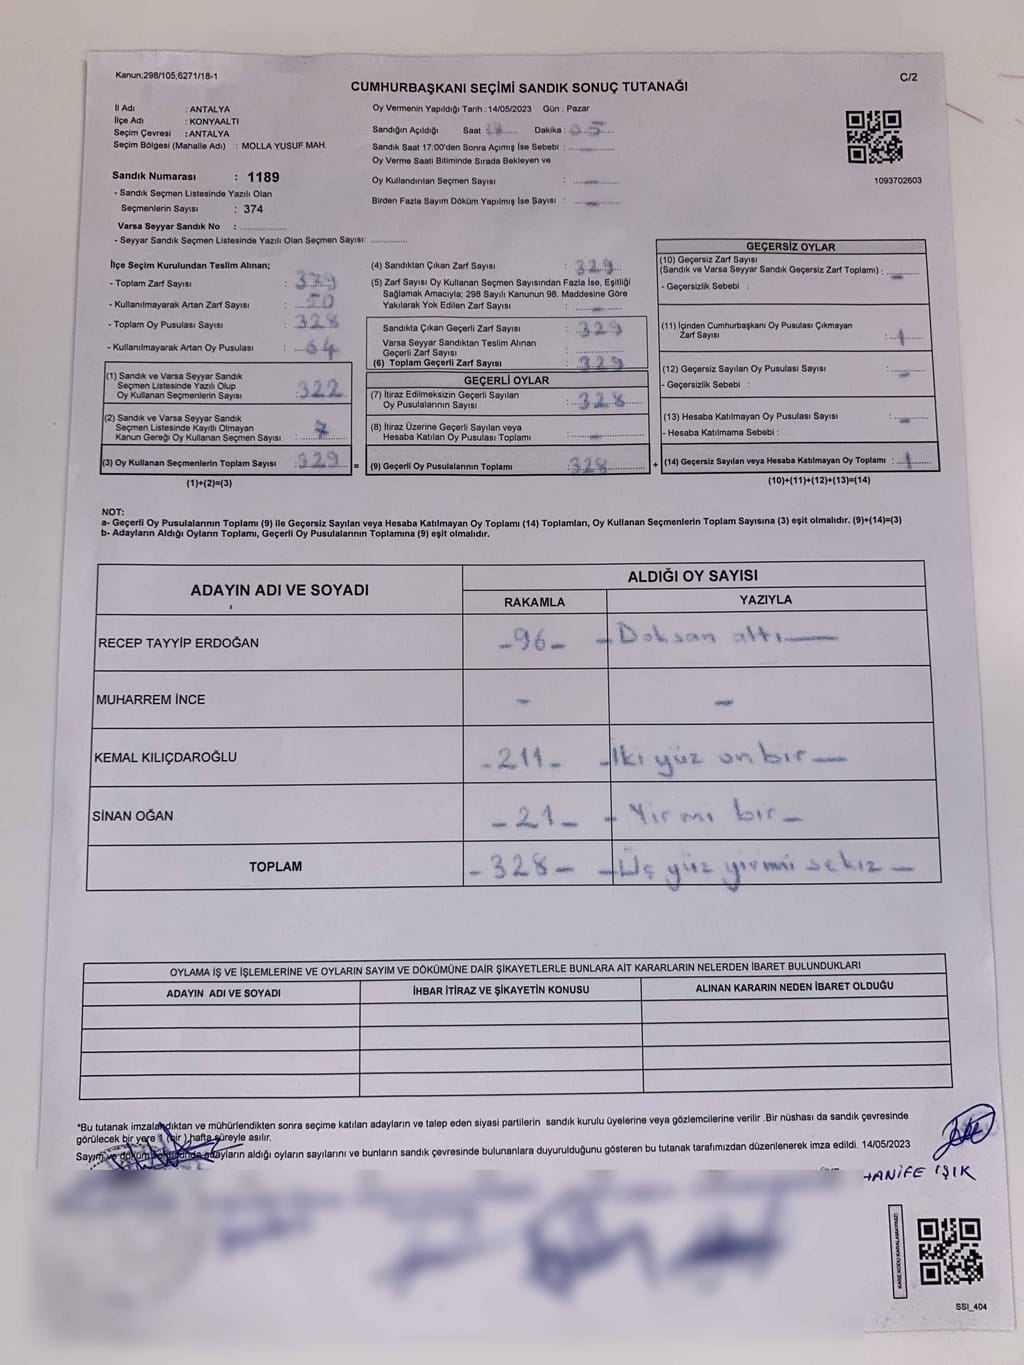 Kanun;298/105,6271/18-1
C/2
CUMHURBAŞKANI SEÇİMİ SANDIK SONUÇ TUTANAĞI
İl Adı : ANTALYA
İlçe Adı : KONYAALTI
Seçim Çevresi : ANTALYA
Seçim Bölgesi (Mahalle Adı) : MOLLA YUSUF MAH.
Sandık Numarası : 1189
- Sandık Seçmen Listesinde Yazılı Olan
Seçmenlerin Sayısı : 374
Varsa Seyyar Sandık No : ..............
- Seyyar Sandık Seçmen Listesinde Yazılı Olan Seçmen Sayısı: ............
Oy Vermenin Yapıldığı Tarih : 14/05/2023 Gün : Pazar
Sandığın Açıldığı Saat : Dakika : 05
Sandık Saat 17:00'den Sonra Açımış İse Sebebi :
Oy Verme Saati Bitiminde Sırada Bekleyen ve
Oy Kullandırılan Seçmen Sayısı :
Birden Fazla Sayım Döküm Yapılmış İse Sayısı :
1093702603
İlçe Seçim Kurulundan Teslim Alınan;
- Toplam Zarf Sayısı : 379
- Kullanılmayarak Artan Zarf Sayısı : 50
- Toplam Oy Pusulası Sayısı : 328
- Kullanılmayarak Artan Oy Pusulası : 64
(1) Sandık ve Varsa Seyyar Sandık
Seçmen Listesinde Yazılı Olup
Oy Kullanan Seçmenlerin Sayısı : 322
(2) Sandık ve Varsa Seyyar Sandık
Seçmen Listesinde Kayıtlı Olmayan
Kanun Gereği Oy Kullanan Seçmen Sayısı : 7
(3) Oy Kullanan Seçmenlerin Toplam Sayısı : 329
(1)+(2)=(3)
=
(4) Sandıktan Çıkan Zarf Sayısı : 329
(5) Zarf Sayısı Oy Kullanan Seçmen Sayısından Fazla İse, Eşitliği
Sağlamak Amacıyla; 298 Sayılı Kanunun 98. Maddesine Göre
Yakılarak Yok Edilen Zarf Sayısı : -
Sandıkta Çıkan Geçerli Zarf Sayısı : 329
Varsa Seyyar Sandıktan Teslim Alınan
Geçerli Zarf Sayısı : ..............
(6) Toplam Geçerli Zarf Sayısı : 329
GEÇERLİ OYLAR
(7) İtiraz Edilmeksizin Geçerli Sayılan
Oy Pusulalarının Sayısı : 328
(8) İtiraz Üzerine Geçerli Sayılan veya
Hesaba Katılan Oy Pusulası Toplamı : -
(9) Geçerli Oy Pusulalarının Toplamı : 328
+
GEÇERSİZ OYLAR
(10) Geçersiz Zarf Sayısı
(Sandık ve Varsa Seyyar Sandık Geçersiz Zarf Toplamı) : -
- Geçersizlik Sebebi :
(11) İçinden Cumhurbaşkanı Oy Pusulası Çıkmayan
Zarf Sayısı : 1
(12) Geçersiz Sayılan Oy Pusulası Sayısı : -
- Geçersizlik Sebebi :
(13) Hesaba Katılmayan Oy Pusulası Sayısı : -
- Hesaba Katılmama Sebebi :
(14) Geçersiz Sayılan veya Hesaba Katılmayan Oy Toplamı : 1
(10)+(11)+(12)+(13)=(14)
NOT:
a- Geçerli Oy Pusulalarının Toplamı (9) ile Geçersiz Sayılan veya Hesaba Katılmayan Oy Toplamı (14) Toplamları, Oy Kullanan Seçmenlerin Toplam Sayısına (3) eşit olmalıdır. (9)+(14)=(3)
b- Adayların Aldığı Oyların Toplamı, Geçerli Oy Pusulalarının Toplamına (9) eşit olmalıdır.
ADAYIN ADI VE SOYADI
ALDIĞI OY SAYISI
RAKAMLA YAZIYLA
RECEP TAYYİP ERDOĞAN -96- -Doksan altı-
MUHARREM İNCE - -
KEMAL KILIÇDAROĞLU -211- -İki yüz on bir-
SİNAN OĞAN -21- - Yirmi bir-
TOPLAM -328- -Üç yüz yirmi sekiz-
OYLAMA İŞ VE İŞLEMLERİNE VE OYLARIN SAYIM VE DÖKÜMÜNE DAİR ŞİKAYETLERLE BUNLARA AİT KARARLARIN NELERDEN İBARET BULUNDUKLARI
ADAYIN ADI VE SOYADI İHBAR İTİRAZ VE ŞİKAYETİN KONUSU ALINAN KARARIN NEDEN İBARET OLDUĞU
*Bu tutanak imzalandıktan ve mühürlendikten sonra seçime katılan adayların ve talep eden siyasi partilerin sandık kurulu üyelerine veya gözlemcilerine verilir .Bir nüshası da sandık çevresinde
görülecek bir yere 1 (bir ) hafta süreyle asılır.
Sayım ve döküm adayların aldığı oyların sayılarını ve bunların sandık çevresinde bulunanlara duyurulduğunu gösteren bu tutanak tarafımızdan düzenlenerek imza edildi. 14/05/2023
HANİFE IŞIK
KARE KODU KARALAMAYINIZ!
SSI_404